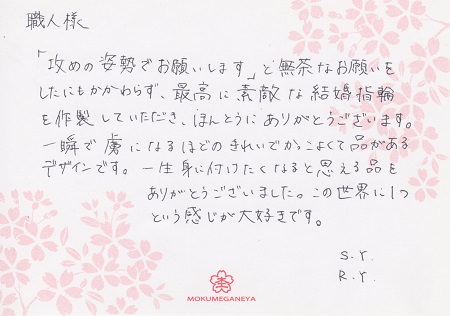 職人様
「攻めの姿勢でお願いします」と無茶なお願いを
したにもかかわらず、最高に素敵な結婚指輪
を作製していただき、ほんとうにありがとうございます。
一瞬で虜になるほどのきれいでかっこよくて品がある
デザインです。一生身に付けたくなると思える品を
ありがとうございました。この世界に1つ
という感じが大好きです。
S.Y.
R.Y.
MOKUMEGANEYA